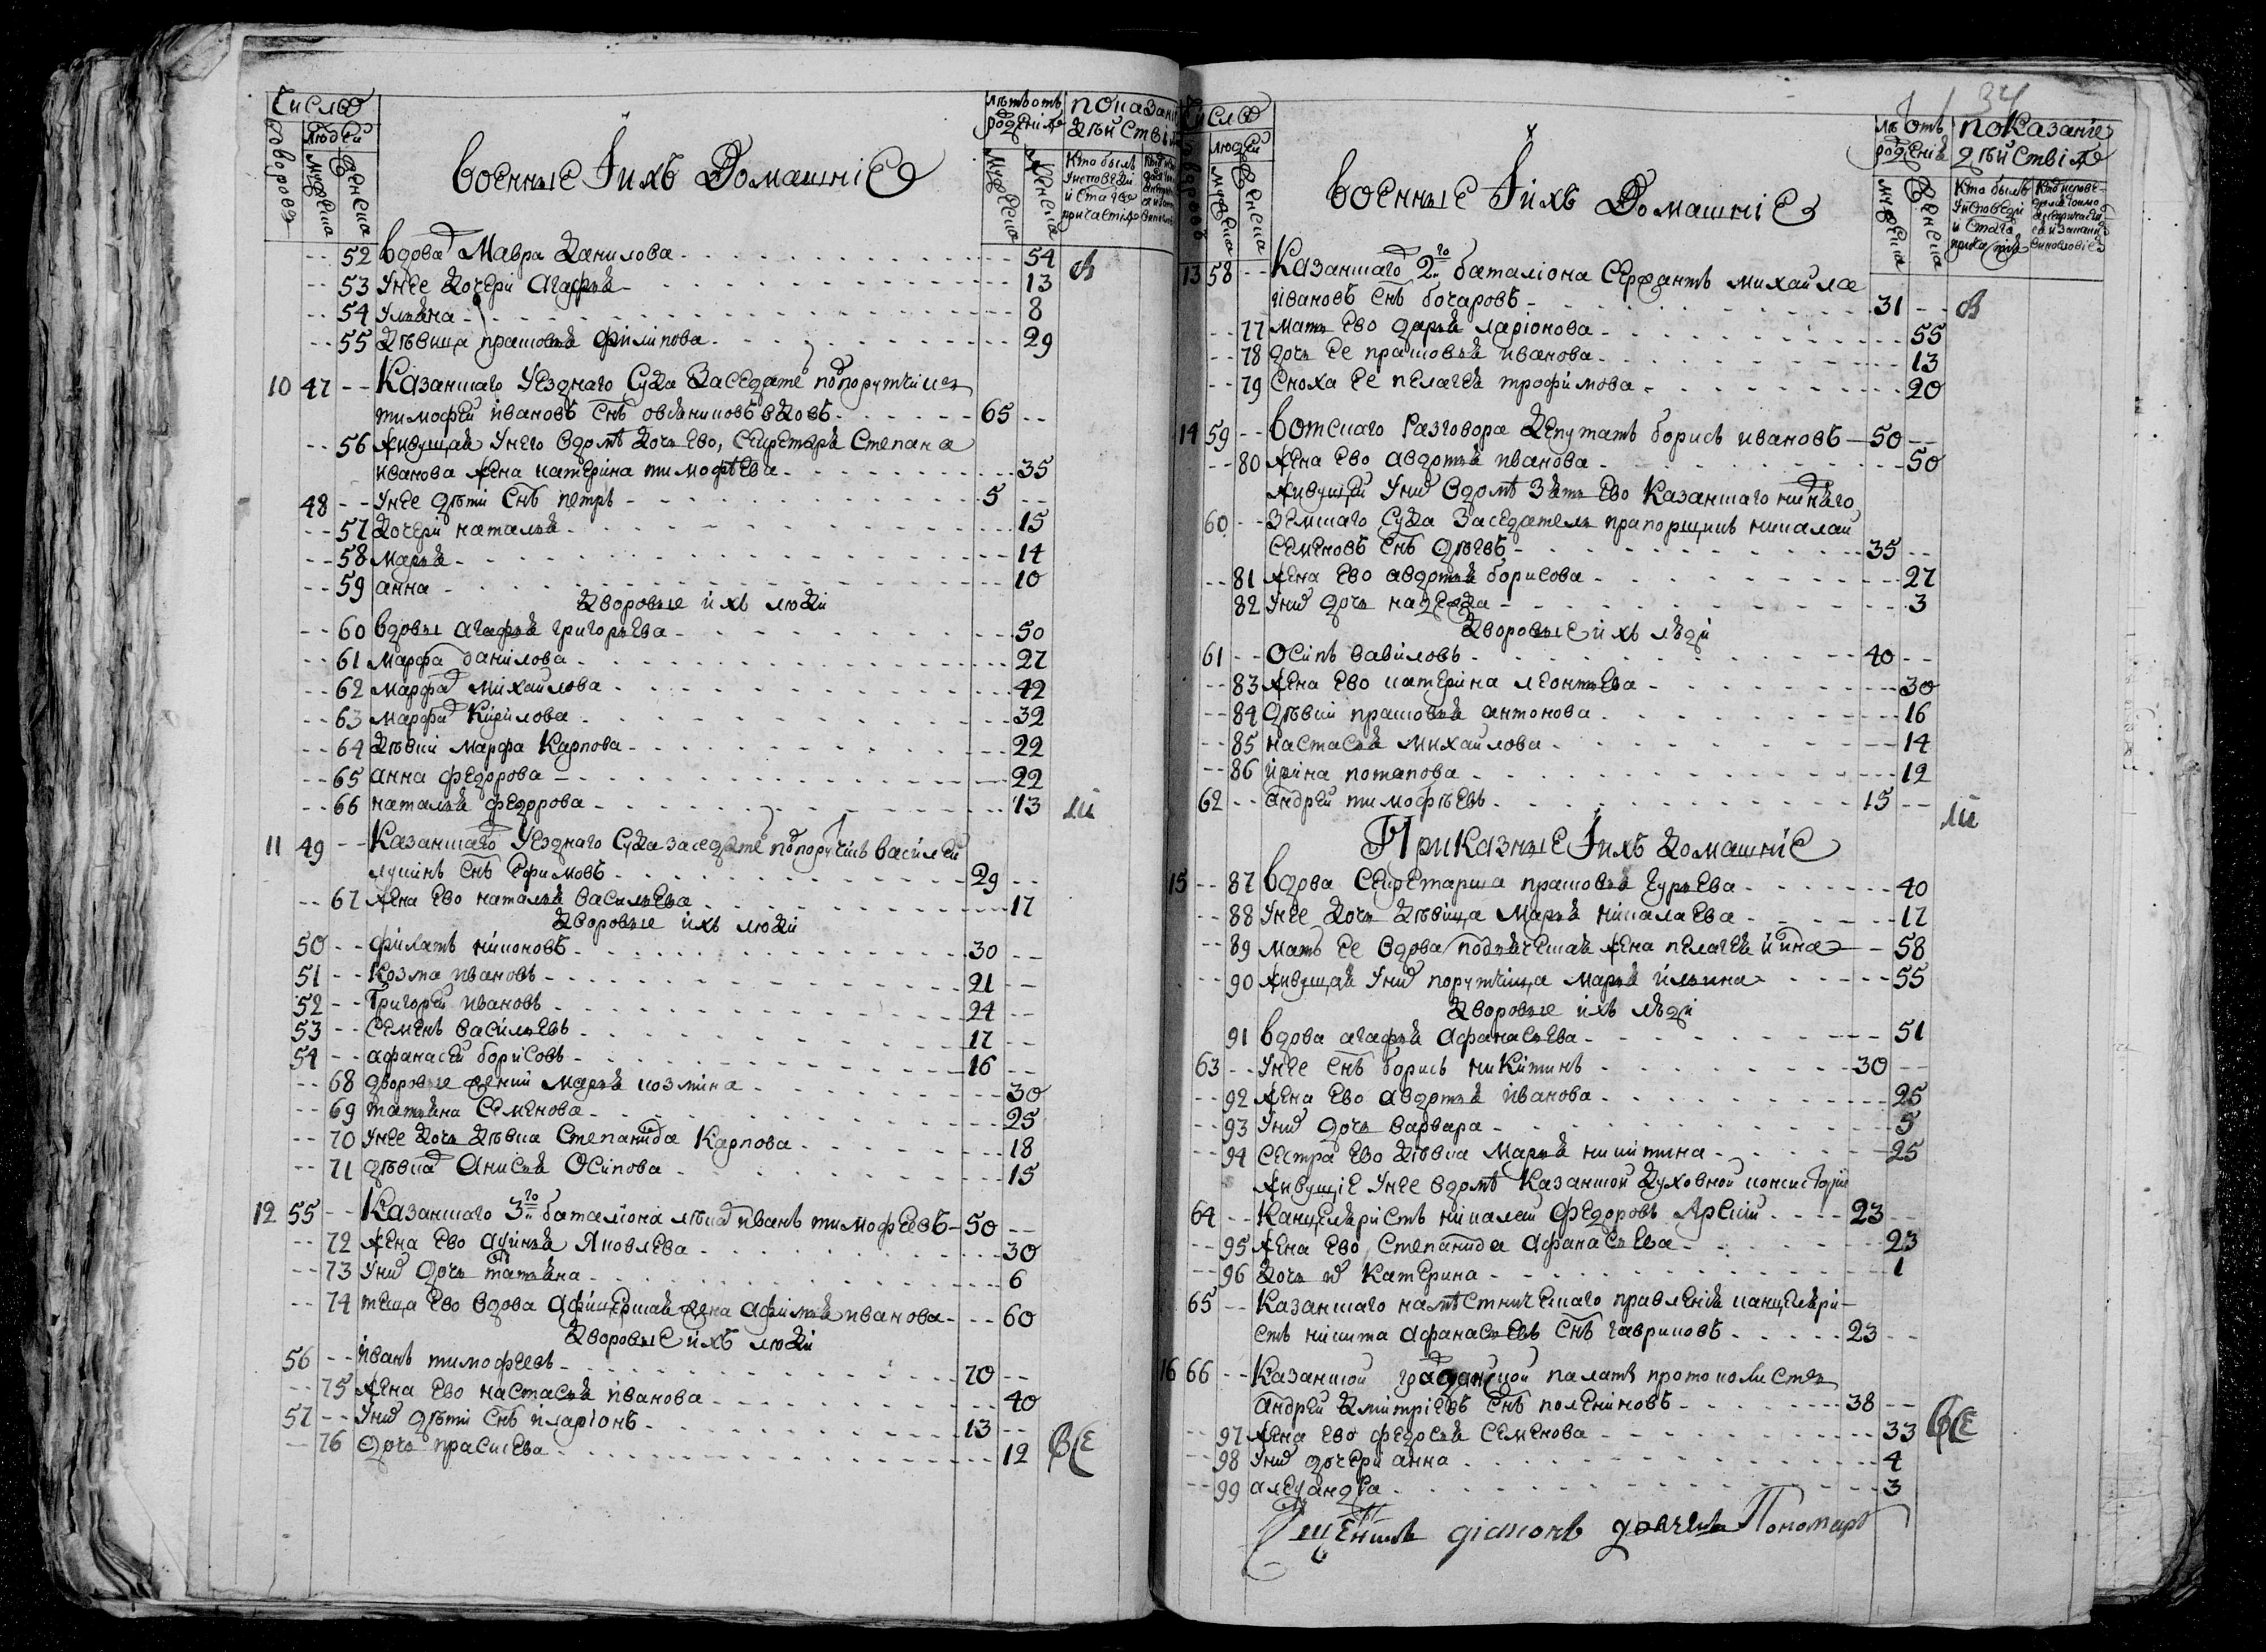 Число
дворовъ
людей
мужеска
женска
военные Їихъ Домашнїе
лѣтъ отъ рожденїя
мужеска
женска
показанї
дѣйствїя
Кто былъ
у исповеди
и святаго
причастїя
52 вдова Мавра Данилова 54
53 Унее Дочери Агафья 13
54 Ульяна 8
55 Дѣвица прасковья Филипова 29
10 47 Казанскаго Уезднаго Суда Заседате подпорутчикъ
тимофей ивановъ снъ овсяниковъ вдовъ 65
56 Живущая Унего вдомѣ Дочь Ево, Секретаря Степана
иванова жена катерина тимофѣева 35
48 Унее дѣти снъ петръ 5
57 Дочери наталья 15
58 Марья 14
59 анна 10
Дворовые ихъ люди
60 вдовы агафья григорьева 50
61 Марфа данилова 27
62 марфа михайлова 42
63 марфа Кирилова 32
64 Дѣвки марфа Карпова 22
65 анна федорова 22
66 наталья федорова 13
11 49 Казанскаго Уезднаго Суда заседате подпорутчикъ василей
лукинъ снъ Ефимовъ 29
67 Жена Ево наталья васильева 17
Дворовые ихъ люди
50 филатъ никоновъ 30
51 Козма ивановъ 21
52 Григорей ивановъ 24
53 Семенъ васильевъ 17
54 афанасей борисовъ 16
68 дворовые женки марья козмина 30
69 татьяна Семенова 25
70 Унее Дочь Дѣвка Степанида Карпова 18
71 дѣвка Анисья Осипова 15
12 55 Казанскаго 3го баталїона лѣка иванъ тимофеевъ 50
72 Жена Ево акулина Яковлева 30
73 Уни Дочь татьяна 6
74 теща Ево вдова афицерская жена афимья иванова 60
Дворовые ихъ люди
56 иванъ тимофеевъ 70
75 Жена Ево настасья иванова 40
57 Уни дѣти снъ иларїонъ 13
76 Дочь праскева 12
все
34
Число
дворовъ
людей
мужеска
женска
военные Їихъ Домашнїе
лѣ отъ
рожденїя
мужеска
женска
показанїе
дѣйствїя
Кто былъ
у исповеди
и святаго
13 58 Казанскаго 2го баталїона Сержантъ михайла
ивановъ снъ бочаровъ 31
77 мать Ево дарья ларїонова 55
78 дочь Ее прасковья иванова 13
79 сноха Ее пелагея трофимова 20
14 59 вотскаго Разговора Депутатъ борисъ ивановъ 50
80 Жена Ево авдотья иванова 50
Живущей Уни вдомѣ Зять Ево Казанскаго нижняго
60 Земскаго Суда Заседатель прапорщикъ николай
семеновъ снъ 35
81 Жена Ево авдотья борисова 27
82 Уни дочь надежда 3
Дворовые ихъ люди
61 Осипъ вавиловъ 40
83 Жена Ево катерина леонтьева 30
84 Дѣвки прасковья антонова 16
85 настасья михайлова 14
86 ирина потапова 12
62 андрей тимофѣевъ 15
Приказные Їихъ домашнїе
15 87 вдова Секретарша прасковья Гурьева 40
88 Унее Дочь Дѣвица Марья николаева 17
89 Мать Ее вдова подьяческая жена пелагея 58
90 Живущая Уни порутчица марья ильина 55
Дворовые ихъ люди
91 вдова агафья афанасьева 51
63 Унее снъ борисъ никитинъ 30
92 Жена Ево авдотья иванова 25
93 Уни дочь варвара 5
94 Сестра Ево Дѣвка Марья никитина 25
Живущїе Унее вдомѣ Казанской Духовной консисторїи
64 Канцеляристъ николай федоровъ Арский 23
95 Жена Ево Степанида афанасьева 23
96 Дочь и катерина 1
65 Казанскаго намѣстническаго правленїя канцеляри-
стъ никита афанасьевъ снъ гавриловъ 23
16 66 Казанской гражданской палатѣ протоколистъ
андрей Дмитрїевъ снъ 38
97 Жена Ево федосья Семенова 33
98 Уни дочери анна 4
99 александра 3
все
дїаконъ дьячекъ Пономарь